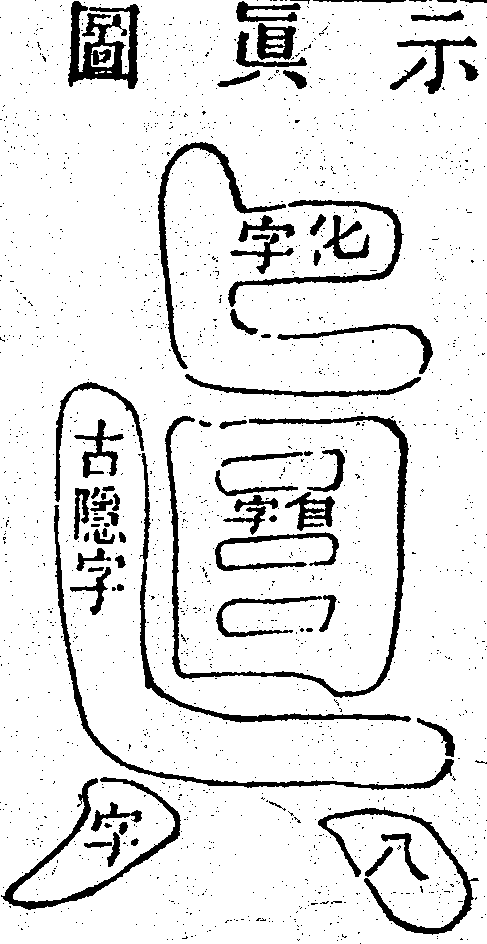 示眞圖
化字
自字
古隱字
八字